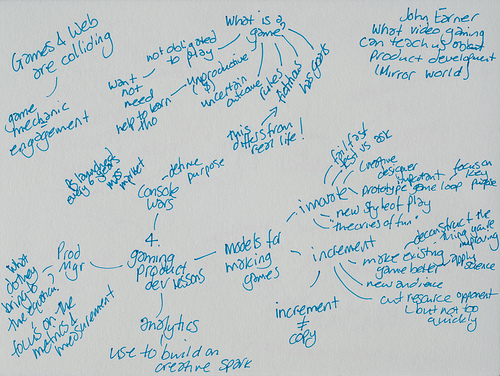 Games & Web
are colliding
game
mechanic
engagement
What is a
game?
not obligated
to play
want
not
need
help to learn
tho
unproductive
($)
uncertain
outcome
rules
fictitious
has goals
this
differs from
real life!
John Earner
What video gaming
can teach us about
product development
(Mirror world)
4.
gaming
product
dev lessons
Console
Wars
define
purpose
is launched
every 6 years
mass
market
Prod
Mgr
What
do they
bring to
the equation?
focus on the
metrics &
measurement
analytics
use to build on
creative spark
models for
making
games
innovate
fail fast
test vs ask
creative
designer
important
prototype game loop
focus on
key
purpose
new style of play
"theories of fun"
increment
deconstruct the
thing you're
improving
make existing
game better
apply
science
new audience
cut resource opponent
but not too
quickly
increment
≠
copy